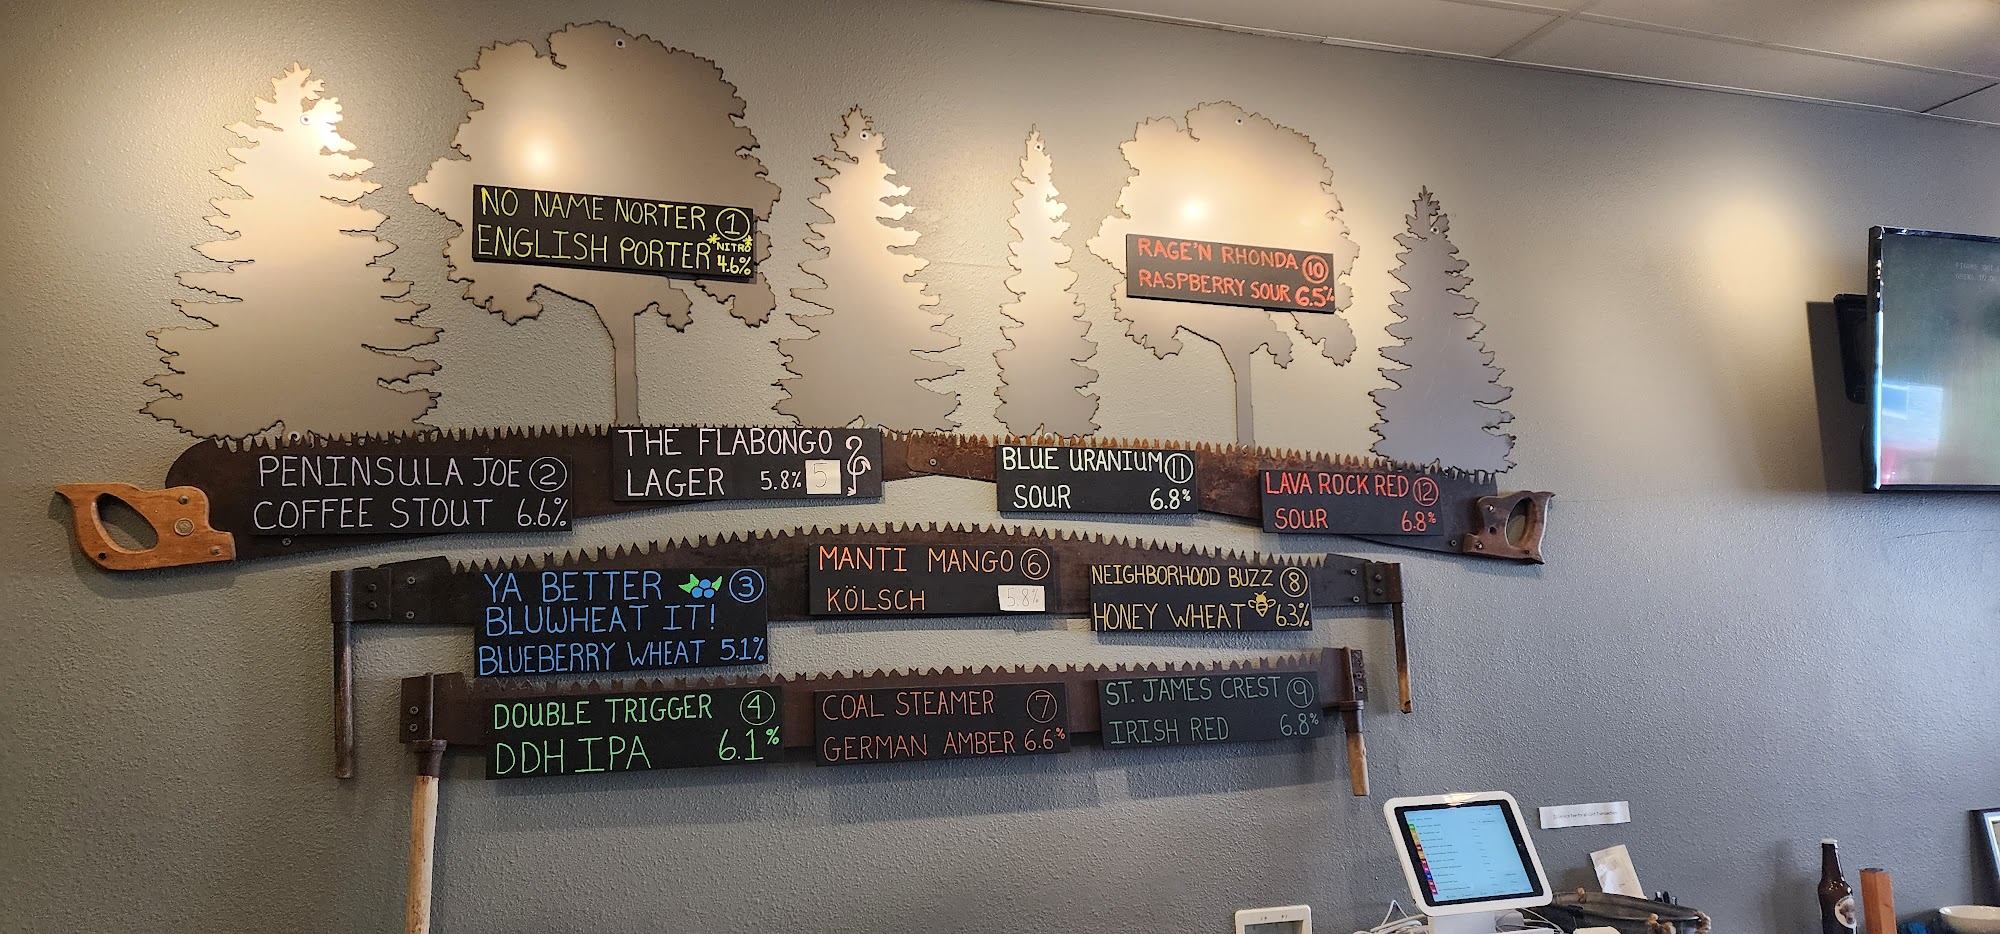 NO NAME NORTER 1
ENGLISH PORTER *NITRO* 4.6%
RAGE'N RHONDA 10
RASPBERRY SOUR 6.5%
PENINSULA JOE 2
COFFEE STOUT 6.6%
THE FLABONGO
LAGER 5.8% 5
BLUE URANIUM 11
SOUR 6.8%
LAVA ROCK RED 12
SOUR 6.8%
YA BETTER 3
BLUWHEAT IT!
BLUEBERRY WHEAT 5.1%
MANTI MANGO 6
KÖLSCH 5.8%
NEIGHBORHOOD BUZZ 8
HONEY WHEAT 6.3%
DOUBLE TRIGGER 4
DDH IPA 6.1%
COAL STEAMER 7
GERMAN AMBER 6.6%
ST. JAMES CREST 9
IRISH RED 6.8%